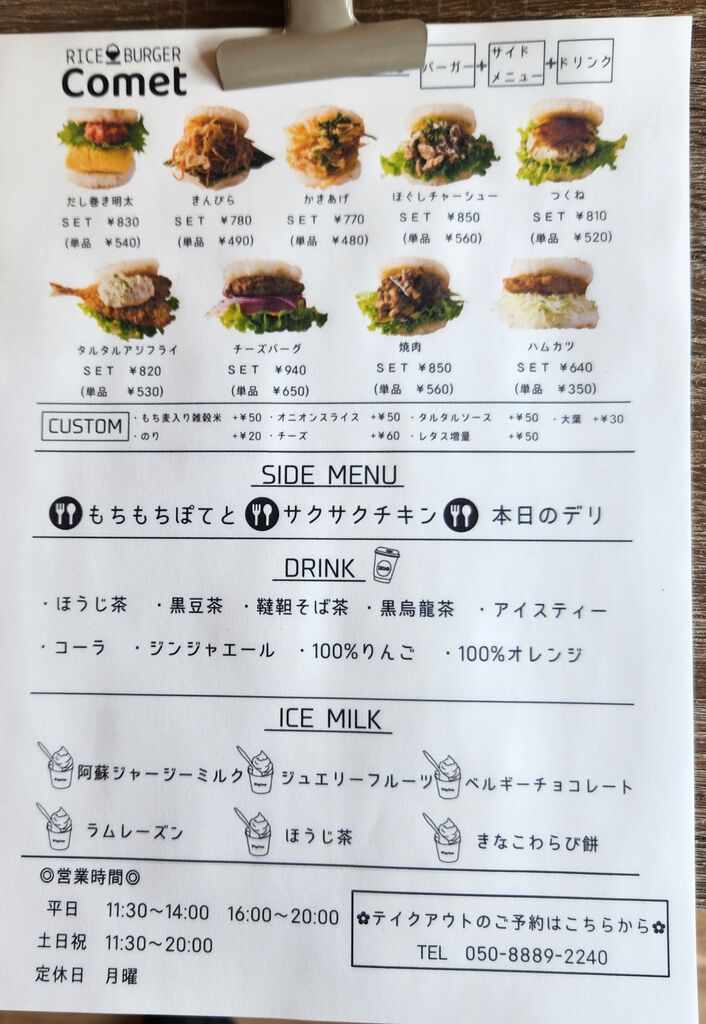 RICE BURGER
Comet
バーガー+サイドメニュー+ドリンク
だし巻き明太 きんぴら かきあげ ほぐしチャーシュー つくね
SET ¥830 SET ¥780 SET ¥770 SET ¥850 SET ¥810
(単品 ¥540) (単品 ¥490) (単品 ¥480) (単品 ¥560) (単品 ¥520)
タルタルアジフライ チーズバーグ 焼肉 ハムカツ
SET ¥820 SET ¥940 SET ¥850 SET ¥640
(単品 ¥530) (単品 ¥650) (単品 ¥560) (単品 ¥350)
CUSTOM
・もち麦入り雑穀米 +¥50 ・オニオンスライス +¥50 ・タルタルソース +¥50 ・大葉 +¥30
・のり +¥20 ・チーズ +¥60 ・レタス増量 +¥50
SIDE MENU
もちもちぽてと サクサクチキン 本日のデリ
DRINK
・ほうじ茶 ・黒豆茶 ・韃靼そば茶 ・黒烏龍茶 ・アイスティー
・コーラ ・ジンジャエール ・100%りんご ・100%オレンジ
ICE MILK
阿蘇ジャージーミルク ジュエリーフルーツ ベルギーチョコレート
ラムレーズン ほうじ茶 きなこわらび餅
◎営業時間◎
平日 11:30〜14:00 16:00〜20:00
土日祝 11:30〜20:00
定休日 月曜
✿テイクアウトのご予約はこちらから✿
TEL 050-8889-2240